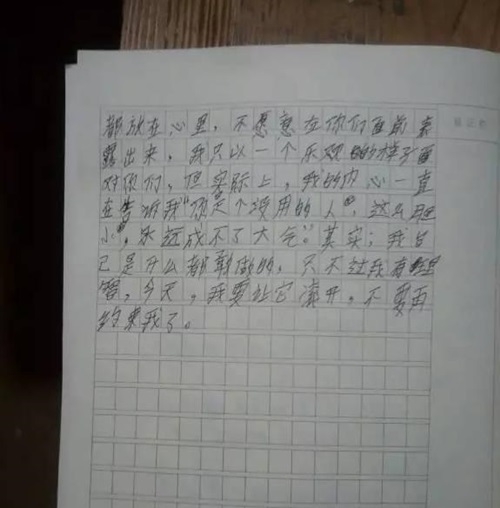 都放在心里，不愿意在你们面前表
露出来，我只以一个乐观的样子面
对你们，但实际上，我的内心一直
在告诉我“你是个没用的人，这么胆
小，永远成不了大气。”其实；我自
己是什么都敢做的，只不过我有理
智，今天，我要让它离开，不要再
约束我了。